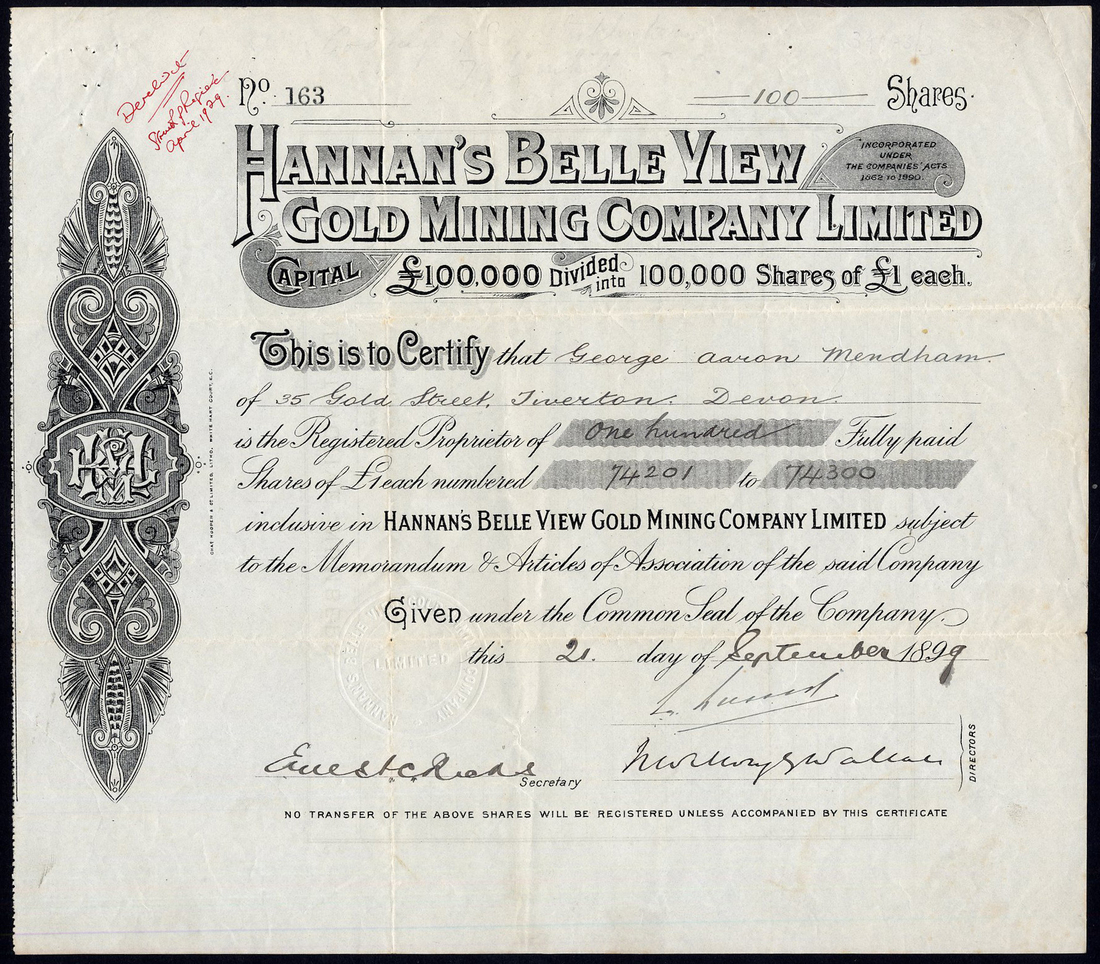 Derelict
Struck off Register
April 1929.
No 163
100 Shares.
HANNAN'S BELLE VIEW
INCORPORATED
UNDER
THE COMPANIES' ACTS
1862 TO 1890.
GOLD MINING COMPANY LIMITED
CAPITAL £100,000 Divided into 100,000 Shares of £1 each.
This is to Certify that George Aaron Mendham
of 35 Gold Street, Tiverton. Devon
is the Registered Proprietor of One hundred Fully paid
Shares of £1 each numbered 74201 to 74300
inclusive in HANNAN'S BELLE VIEW GOLD MINING COMPANY LIMITED subject
to the Memorandum & Articles of Association of the said Company
Given under the Common Seal of the Company.
this 21. day of September 1899
HANNANS BELLE VIEW GOLD MINING COMPANY
LIMITED
Secretary
Wallace
DIRECTORS
NO TRANSFER OF THE ABOVE SHARES WILL BE REGISTERED UNLESS ACCOMPANIED BY THIS CERTIFICATE
LIMITED, LITHO, WHITE HART COURT, E.C.